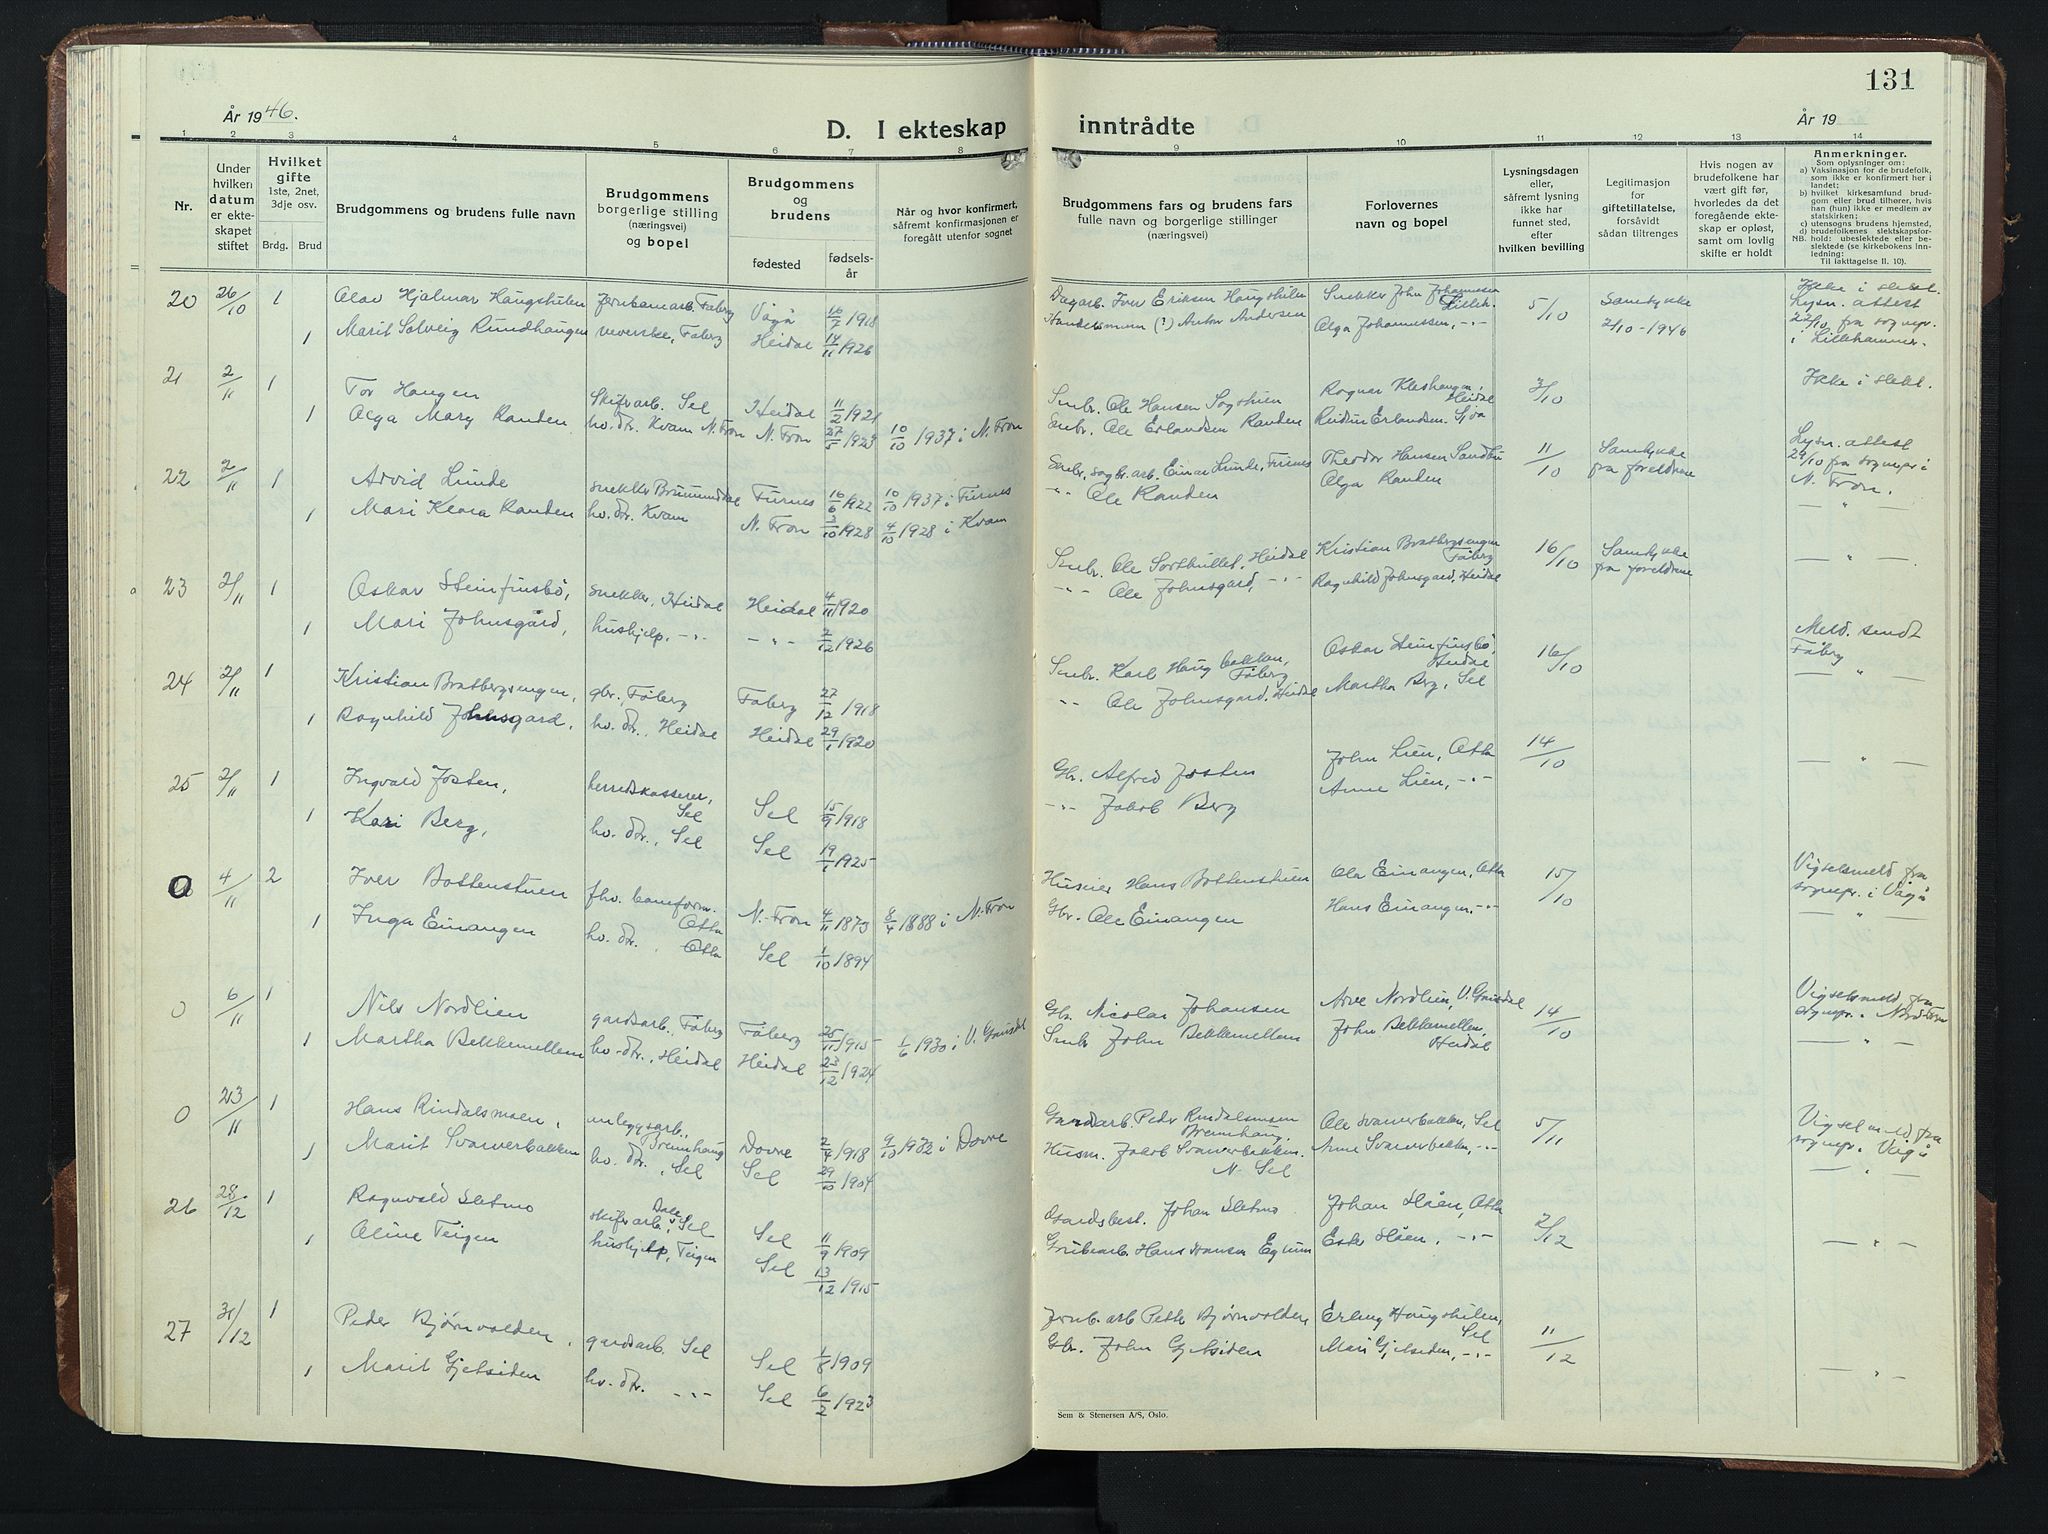 131
År 1946.
År 19
D. I ekteskap inntrådte
1 2 3 4 5 6 7 8 9 10 11 12 13 14
Nr.
Under hvilken datum er ekteskapet stiftet
Hvilket gifte
1ste, 2net, 3dje osv.
Brdg. Brud
Brudgommens og brudens fulle navn
Brudgommens borgerlige stilling (næringsvei) og bopel
Brudgommens og brudens
fødested
fødselsår
Når og hvor konfirmert, såfremt konfirmasjonen er foregått utenfor sognet
Brudgommens fars og brudens fars fulle navn og borgerlige stillinger (næringsvei)
Forlovernes navn og bopel
Lysningsdagen eller, såfremt lysning ikke har funnet sted, efter hvilken bevilling
Legitimasjon for giftetillatelse, forsåvidt sådan tiltrenges
Hvis nogen av brudefolkene har vært gift før, hvorledes da det foregående ekteskap er opløst, samt om lovlig skifte er holdt
Anmerkninger.
Som oplysninger om:
a) Vaksinasjon for de brudefolk, som ikke er konfirmert her i landet;
b) hvilket kirkesamfund brudgom eller brud tilhører, hvis han (hun) ikke er medlem av statskirken;
c) utensogns brudens hjemsted,
d) brudefolkenes slektskapsforhold: ubeslektede eller beslektede (se kirkebokens Innledning:
NB.
Til Iakttagelse II. 10).
20 26/10 1 Olav Hjalmar Haugstulen Jernbanearb. Fåberg Vågå 16/7 1918 Dagarb. Iver Eriksen Haugstulen Snekker John Johannessen Lilleh. 5/10 Samtykke 2/10-1946 Ikke i slekt. Lysn. attest 22/10 fra sognepr. i Lillehammer.
1 Marit Solveig Rundhaugen veverske, Fåberg Heidal 14/11 1926 Handelsmann (?) Anton Andersen Olga Johannessen, -"-
21 2/11 1 Tor Haugen Skiferarb. Sel Heidal 11/2 1921 Smbr. Ole Hansen Sogstuen Ragnar Kleshaugen, Heidal 3/10 Ikke i slekt.
1 Olga Mary Randen hv. dtr. Kvam N. Fron N. Fron 27/5 1923 10/10 1937 i N. Fron Smbr. Ole Erlandsen Randen Reidun Erlandsen. Sjoa
22 2/11 1 Arvid Linde snekker Brumunddal Furnes 16/6 1922 10/10 1937 i Furnes Smbr, sagbr. arb. Einar Linde, Furnes Theodor Hansen Sandbu 11/10 Samtykke fra foreldrene Lysn. attest 29/10 fra sognepr i N. Fron.
1 Mari Klara Randen hv. dtr. Kvam N. Fron 3/10 1928 4/10 1928 i Kvam -"- Ole Randen Olga Randen — " —
23 2/11 1 Oskar Steinfinsbø, snekker, Heidal Heidal 4/11 1920 Smbr. Ole Sorthullet, Heidal Kristian Bratbergsengen Fåberg 16/10 Samtykke fra foreldrene — "
1 Mari Johnsgård, hushjelp, -"- -"- 2/12 1926 -"- Ole Johnsgard, -"- Ragnhild Johnsgard, Heidal
24 2/11 1 Kristian Bratbergsengen, gbr. Fåberg Fåberg 27/12 1918 Smbr. Karl Haugbakken, Fåberg Oskar Steinfinsbø, Heidal 16/10 Meld. sendt Fåberg
1 Ragnhild Johnsgard, hv. dtr., Heidal Heidal 29/1 1920 -"- Ole Johnsgard, Heidal Martha Berg, Sel — " —
25 2/11 1 Ingvald Josten, herredskasserer, Sel Sel 15/9 1918 Gbr. Alfred Josten John Lien, Otta 14/10 — " —
1 Kari Berg, hv. dtr., Sel Sel 19/1 1925 -"- Jakob Berg Anne Lien, -"-
0 4/11 2 Iver Bottenstuen fhv. baneform. Otta N. Fron 4/11 1873 8/4 1888 i N. Fron Huseier Hans Bottenstuen Ola Einangen, Otta 15/10 Vigselsmeld fra sognepr. i Vågå
1 Inga Einangen hv. dtr., Otta Sel 1/10 1894 Gbr. Ole Einangen Hans Einangen, -"- — " —
0 6/11 1 Nils Nordlien gardsarb., Fåberg Fåberg 25/11 1915 1/6 1930 i V. Gausdal Gbr. Nicolai Johansen Arve Nordlien, V. Gausdal 14/10 Vigselsmeld fra sognepr. i Nordfron
1 Martha Bekkemellem hv. dtr., Heidal Heidal 23/12 1924 Smbr John Bekkemellem John Bekkemellem, Heidal — " —
0 23/11 1 Hans Rindalsmoen, anleggsarb., Brennhaug Dovre 2/4 1918 9/10 1932 i Dovre Gardarb. Peder Rindalsmoen Brennhaug. Ole Svarverbakken, Sel 5/11 Vigselsmeld fra sognepr. Vågå
1 Marit Svarverbakken hv. dtr., Sel Sel 29/10 1904 Husm. Jakob Svarverbakken. N. Sel Anne Svarverbakken, -"- — " —
26 28/12 1 Ragnvald Sletmo skiferarb., Dale, Sel Sel 11/9 1909 Gardsbest. Johan Sletmo Johan Slåen, Otta 2/12 — " —
1 Oline Teigen hushjelp, Teigen Sel 13/12 1915 Grubearb. Hans Hansen Ester Slåen, -"-
27 31/12 1 Peder Bjørnvolden, gardsarb. Sel Sel 1/8 1909 Jernb. arb Petter Bjørnvolden Erling Haugstulen, Sel 11/12
1 Marit Gjetsiden hv. dtr. -"- Sel 6/2 1923 Gbr. John Gjetsiden Mari Gjetsiden, -"- — " —
Sem & Stenersen A/S, Oslo.